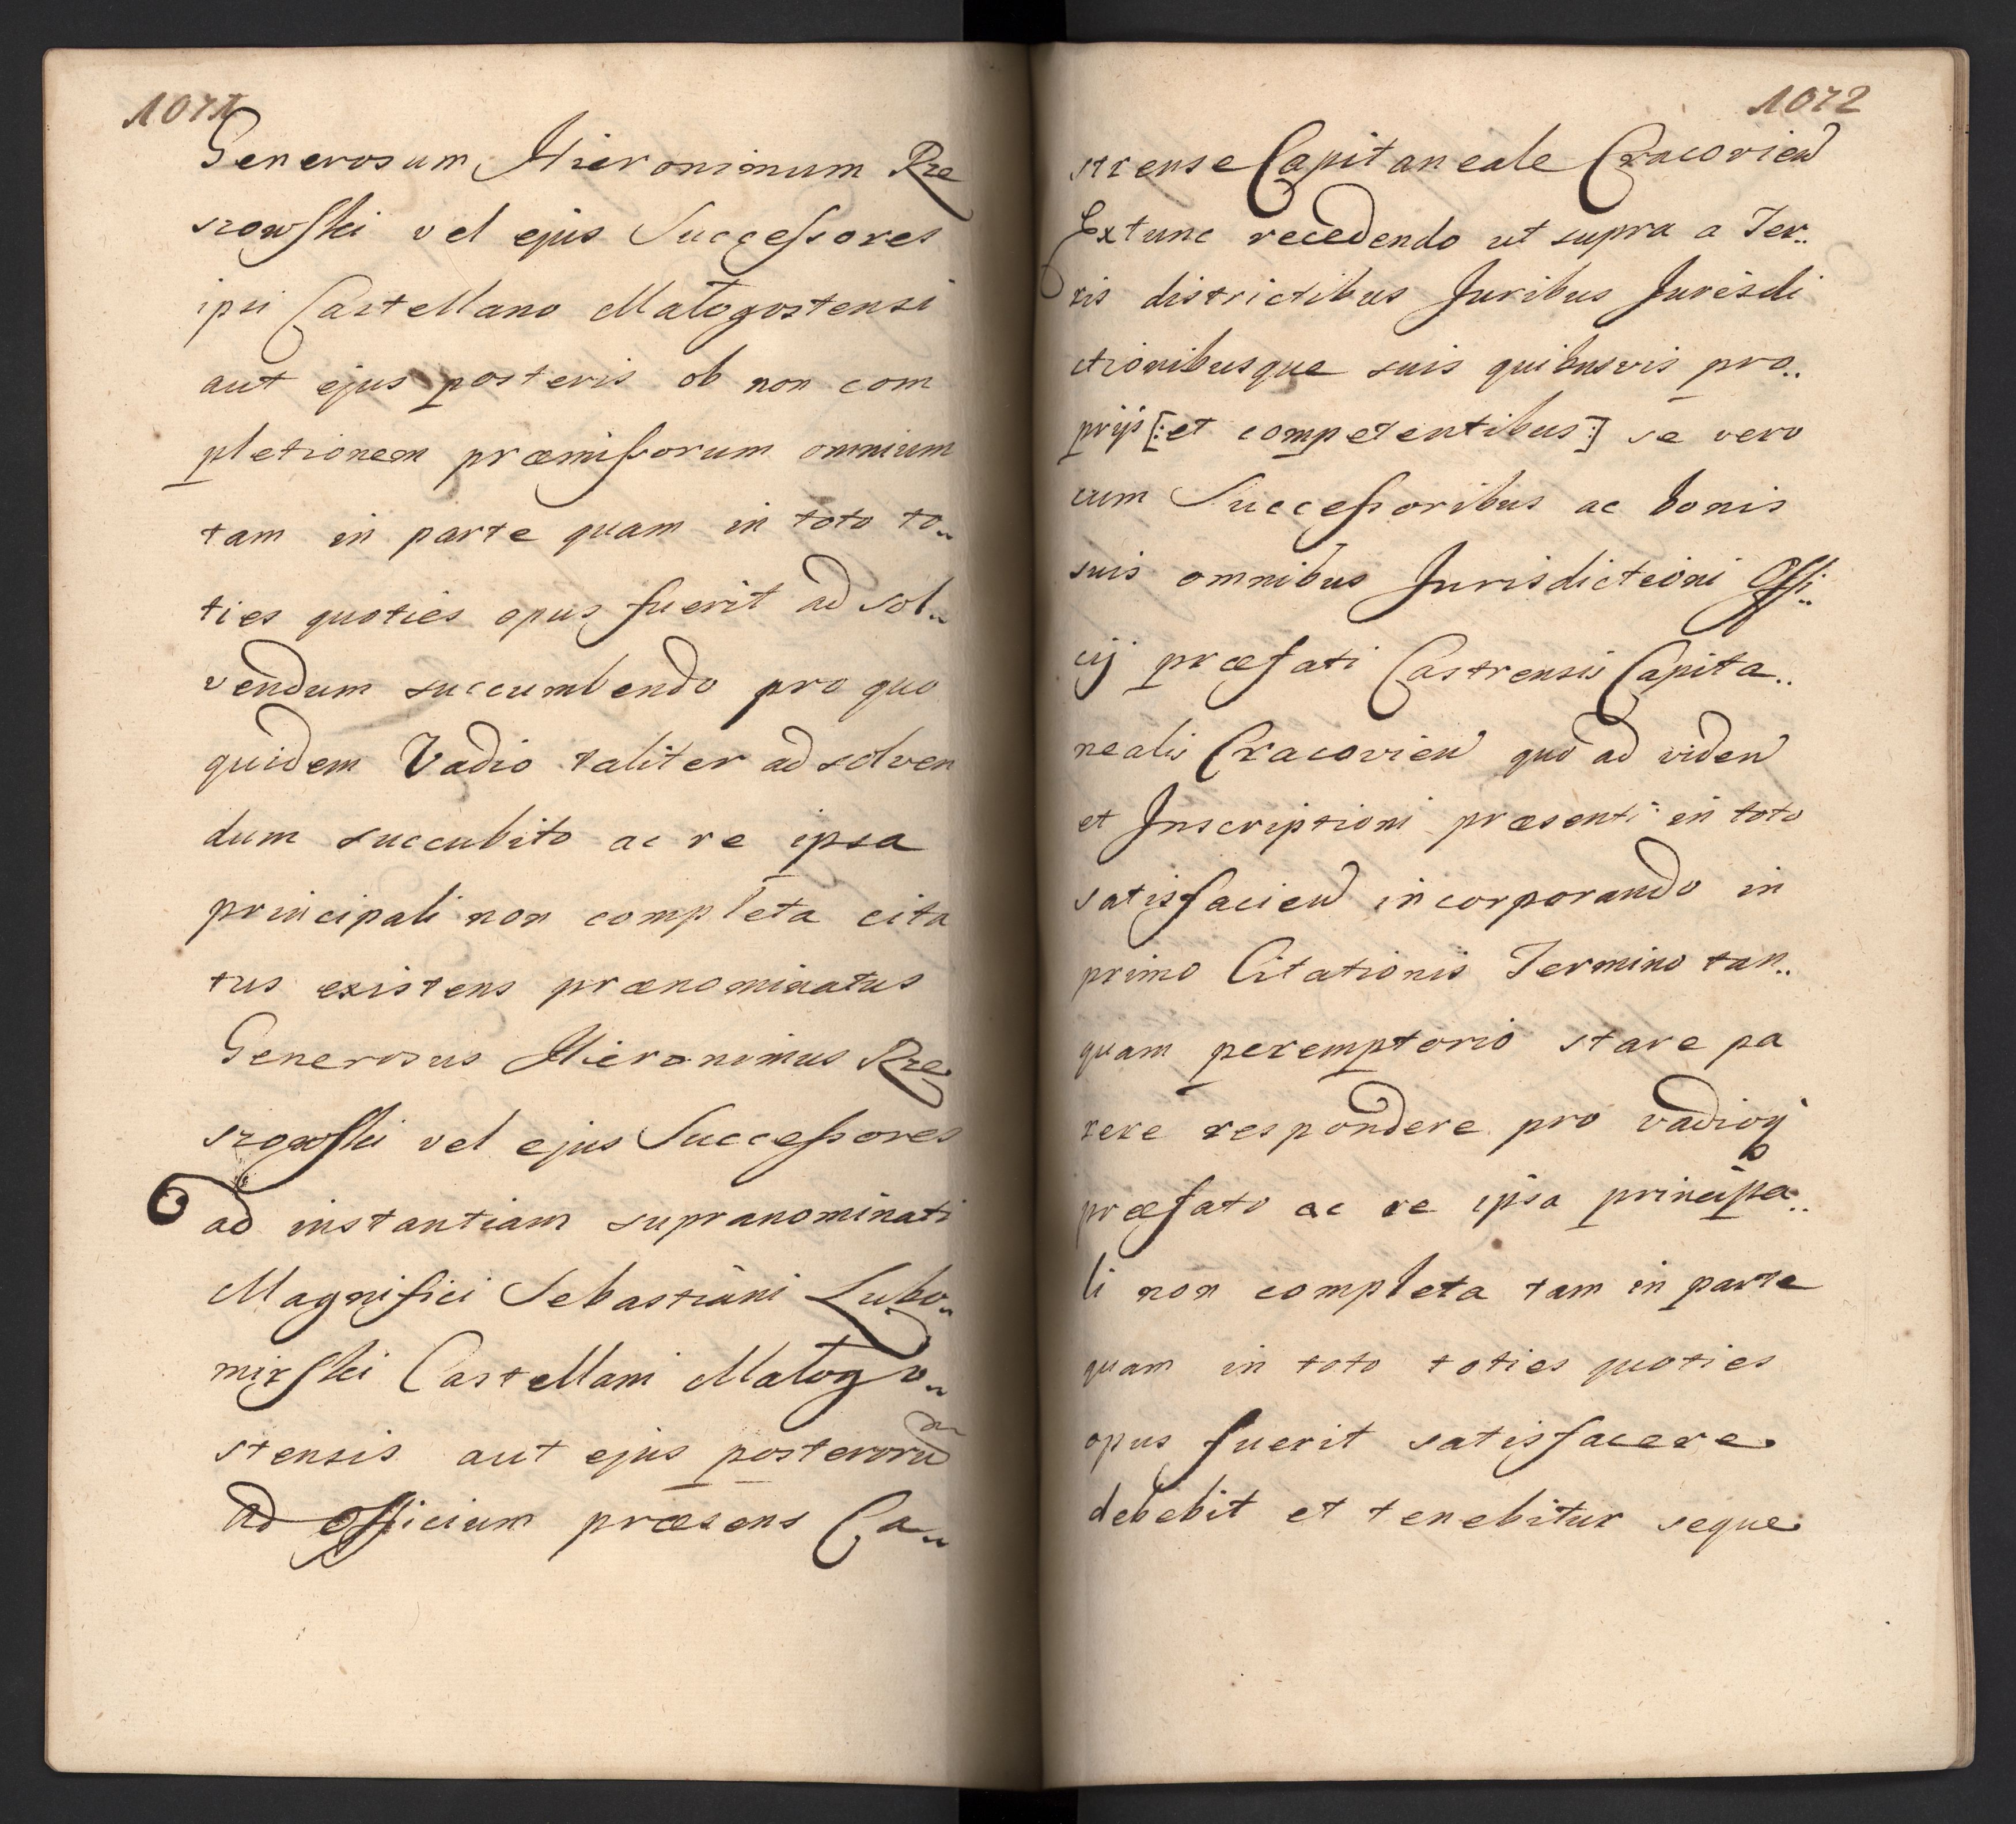 1071
Generosum Hieronimum Rze
szowski vel ejus Successores
ipsi Castellano Małogostensi
aut ejus posteris ob non com
pletionem præmissorum omnium
tam in parte quam in toto to„
ties quoties opus fuerit ad sol„
vendum succumbendo pro quo
quidem Vadio taliter ad solven
dum succubito ac re ipsa
principali non completa cita
tus existens prænominatus
Generosus Hieronimus Rze
szowski vel ejus Successores
ad instantiam supranominati
Magnifici Sebastiani Lubo„
mirski Castellani Małogo„
stensis aut ejus posterorum
ad officium præsens Ca„
1072
strense Capitaneale Cracovien
Extunc recedendo ut supra a Ter..
ris districtibus Juribus Jurisdi
ctionibusque suis quibusvis pro..
prijs [: et competentibus :] se vero
cum Successoribus ac bonis
suis omnibus Jurisdictioni Offi..
cij præfati Castrensis Capita..
nealis Cracovien quo ad viden
et Inscriptioni præsenti in toto
satisfacien incorporando in
primo Citationis Termino tan..
quam peremptorio stare pa
rere respondere pro vadioq
præfato ac re ipsa principa..
li non completa tam in parte
quam in toto toties quoties
opus fuerit satisfacere
debebit et tenebitur seque